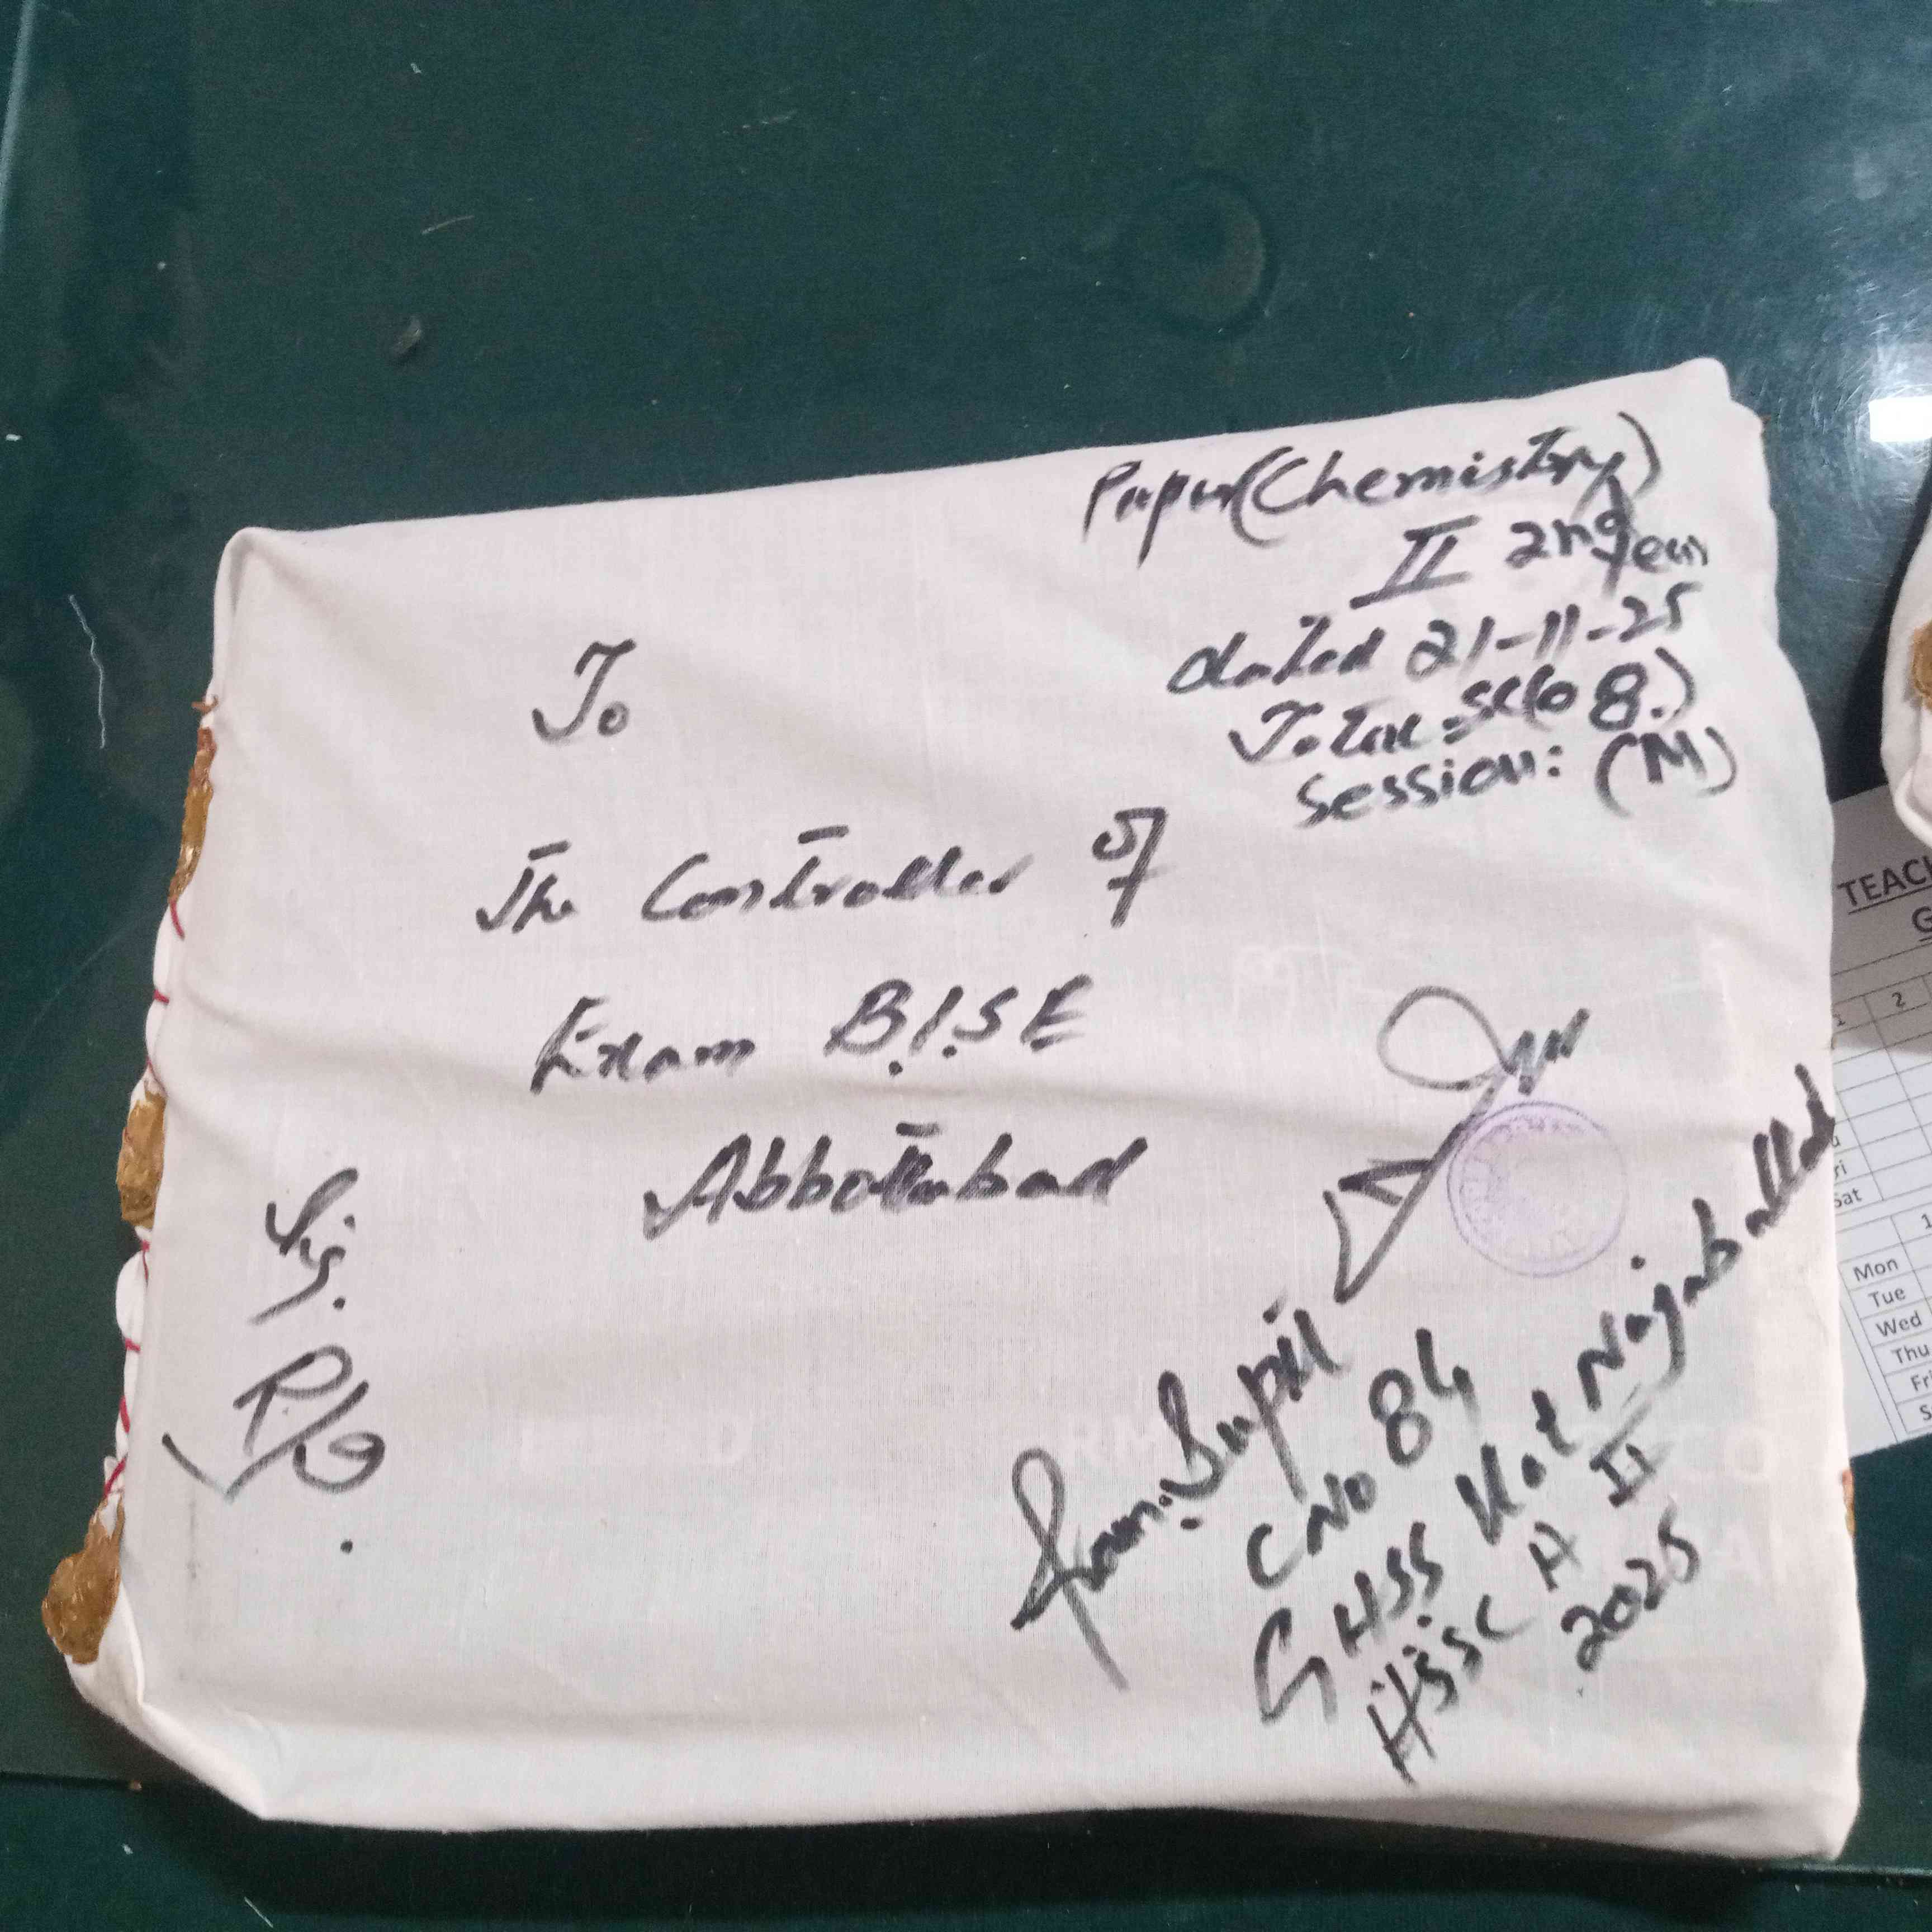 Paper (Chemistry)
II 2nd year
dated 21-11-25
Total = 8.)
Session: (M)
To
The Controller of
Exam B.I.S.E
Abbottabad
Sig.
R/O
From: Supdt
C No 84
GHSS Kot Najeebullah
HSSC A II
2025
TEACH
G
1 2
Fri
Sat
1
Mon
Tue
Wed
Thu
Fri
S